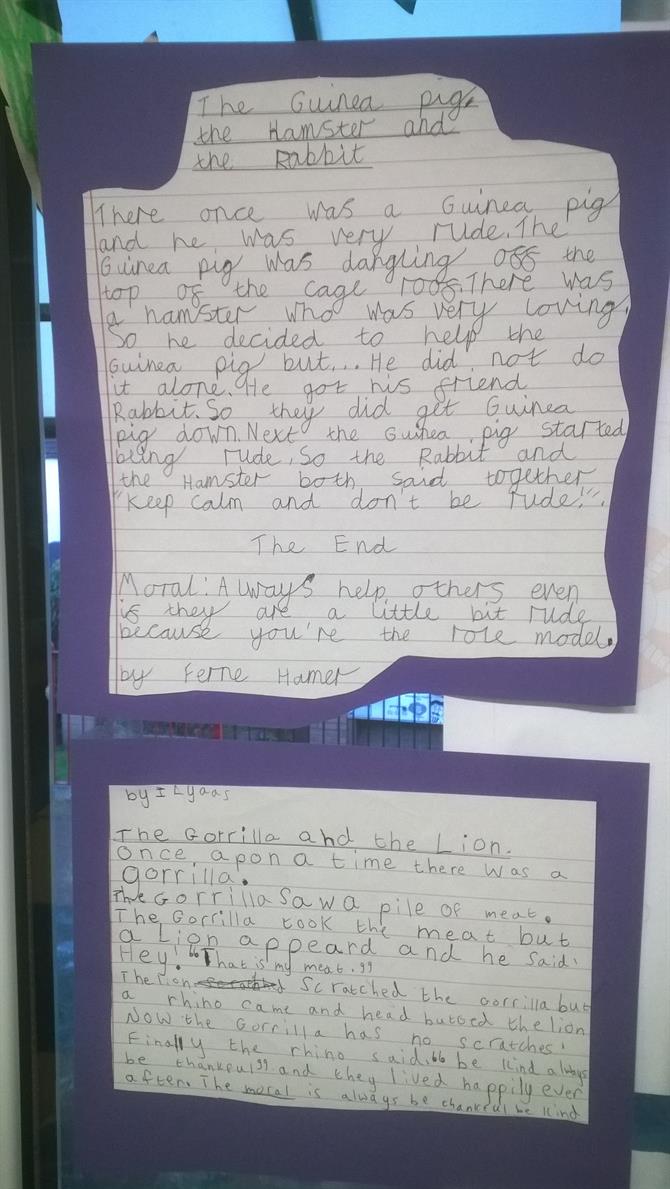 The Guinea pig,
the Hamster and
the Rabbit
There once was a Guinea pig
and he was very rude. The
Guinea pig was dangling off the
top of the cage roof. There was
a hamster who was very loving.
So he decided to help the
Guinea pig but... He did not do
it alone. He got his friend
Rabbit. So they did get Guinea
pig down. Next the Guinea pig started
being rude. So the Rabbit and
the Hamster both said together
"Keep calm and don't be rude!".
The End
Moral: Always help others even
if they are a little bit rude
because you're the role model.
by Ferne Hamer
by ILyaas
The Gorrilla and the Lion.
Once apon a time there was a
gorrilla.
The Gorrilla Saw a pile of meat.
The Gorrilla took the meat but
a Lion appeard and he said.
Hey! "That is my meat."
The Lion scratched Scratched the gorrilla but
a rhino came and head butted the lion
Now the Gorrilla has no scratches!
Finally the rhino said. "be kind always
be thankful" and they lived happily ever
after. The moral is always be thankful be kind